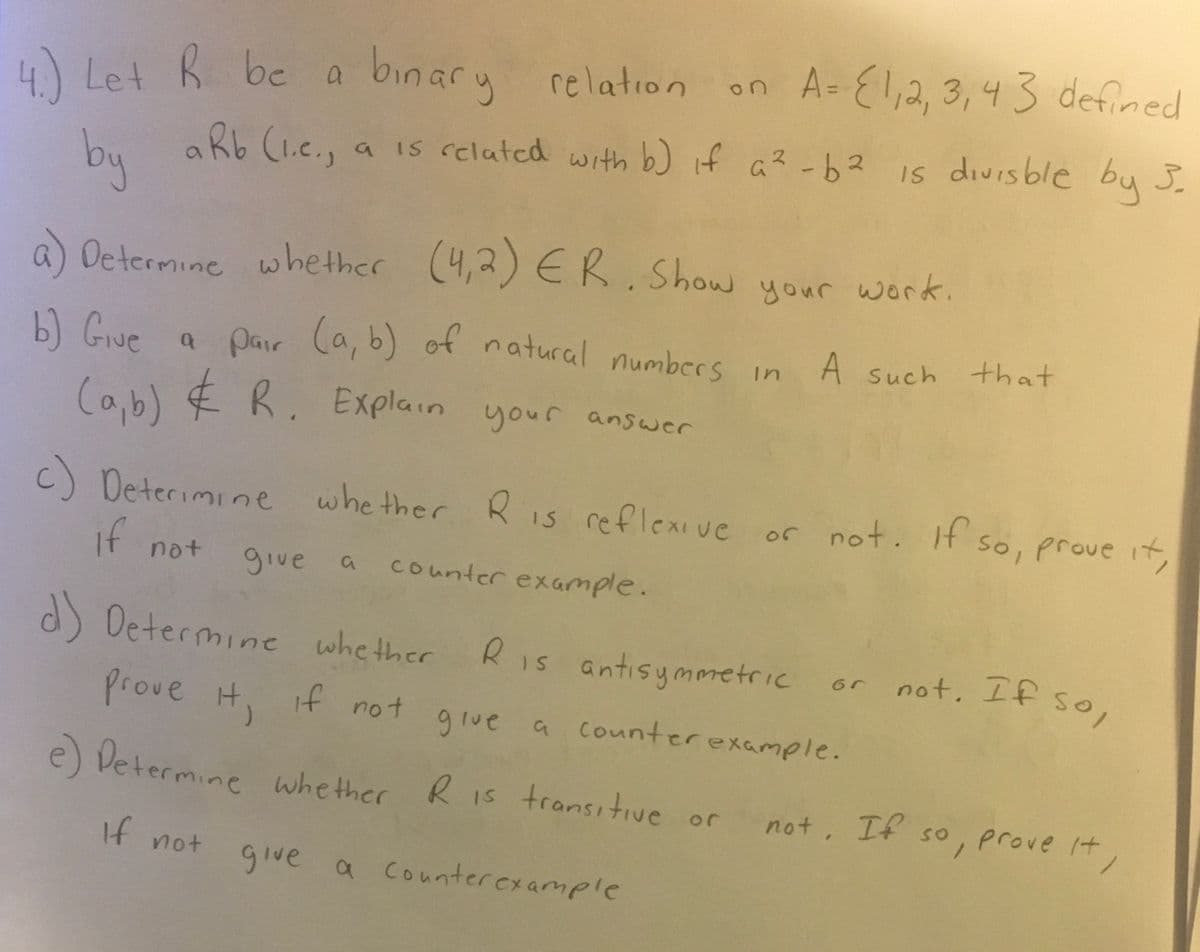 4.) Let R be a binary relation on A = {1,2,3,4} defined
by aRb (i.e., a is related with b) if a² - b² is divisble by 3.
a) Determine whether (4,2) ∈ R. Show your work.
b) Give a pair (a,b) of natural numbers in A such that
(a,b) ∉ R. Explain your answer
c) Deterimine whether R is reflexive or not. If so, prove it,
If not give a counter example.
d) Determine whether R is antisymmetric or not. If so,
prove it, if not give a counterexample.
e) Determine whether R is transitive or not. If so, prove it,
If not give a counterexample